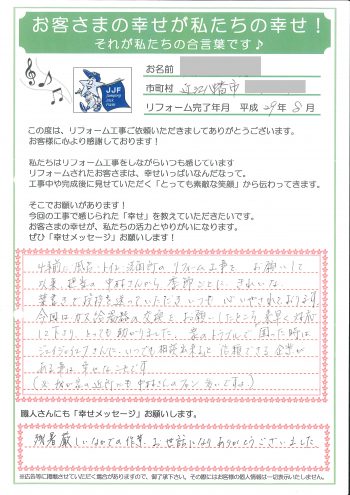 お客さまの幸せが私たちの幸せ！
それが私たちの合言葉です♪
JJF
お名前
市町村 近江八幡市
リフォーム完了年月 平成 29年 8月
この度は、リフォーム工事ご依頼いただきましてありがとうございます。
お客様に心より感謝しております！
私たちはリフォーム工事をしながらいつも感じています
リフォームされたお客さまは、幸せいっぱいなんだなって。
工事中や完成後に見せていただく「とっても素敵な笑顔」から伝わってきます。
そこでお願いがあります！
今回の工事で感じられた「幸せ」を教えていただきたいです。
お客さまの幸せが、私たちの活力とやりがいになります。
ぜひ「幸せメッセージ」お願いします！
4年前、風呂・トイレ・洗面所のリフォーム工事を お願いして
以来、担当の中村さんから季節ごとに きれいな
葉書きで便りを送っていただき いつも 心いやされております。
今回はガス給湯器の交換を お願いしたところ 素早く対応
して下さり、とっても助かりました。家のトラブルで困った時は
ジェイジェイエフさんに、いつでも相談出来ると 信頼できる企業が
ある事は、幸せなことです。
職人さんにも「幸せメッセージ」お願いします。
残暑厳しいなかでの作業、お世話になり ありがとうございました
※広告等に掲載させていただく場合がありますので、御了承下さい。その際にはお客様の個人情報は一切表示いたしません。